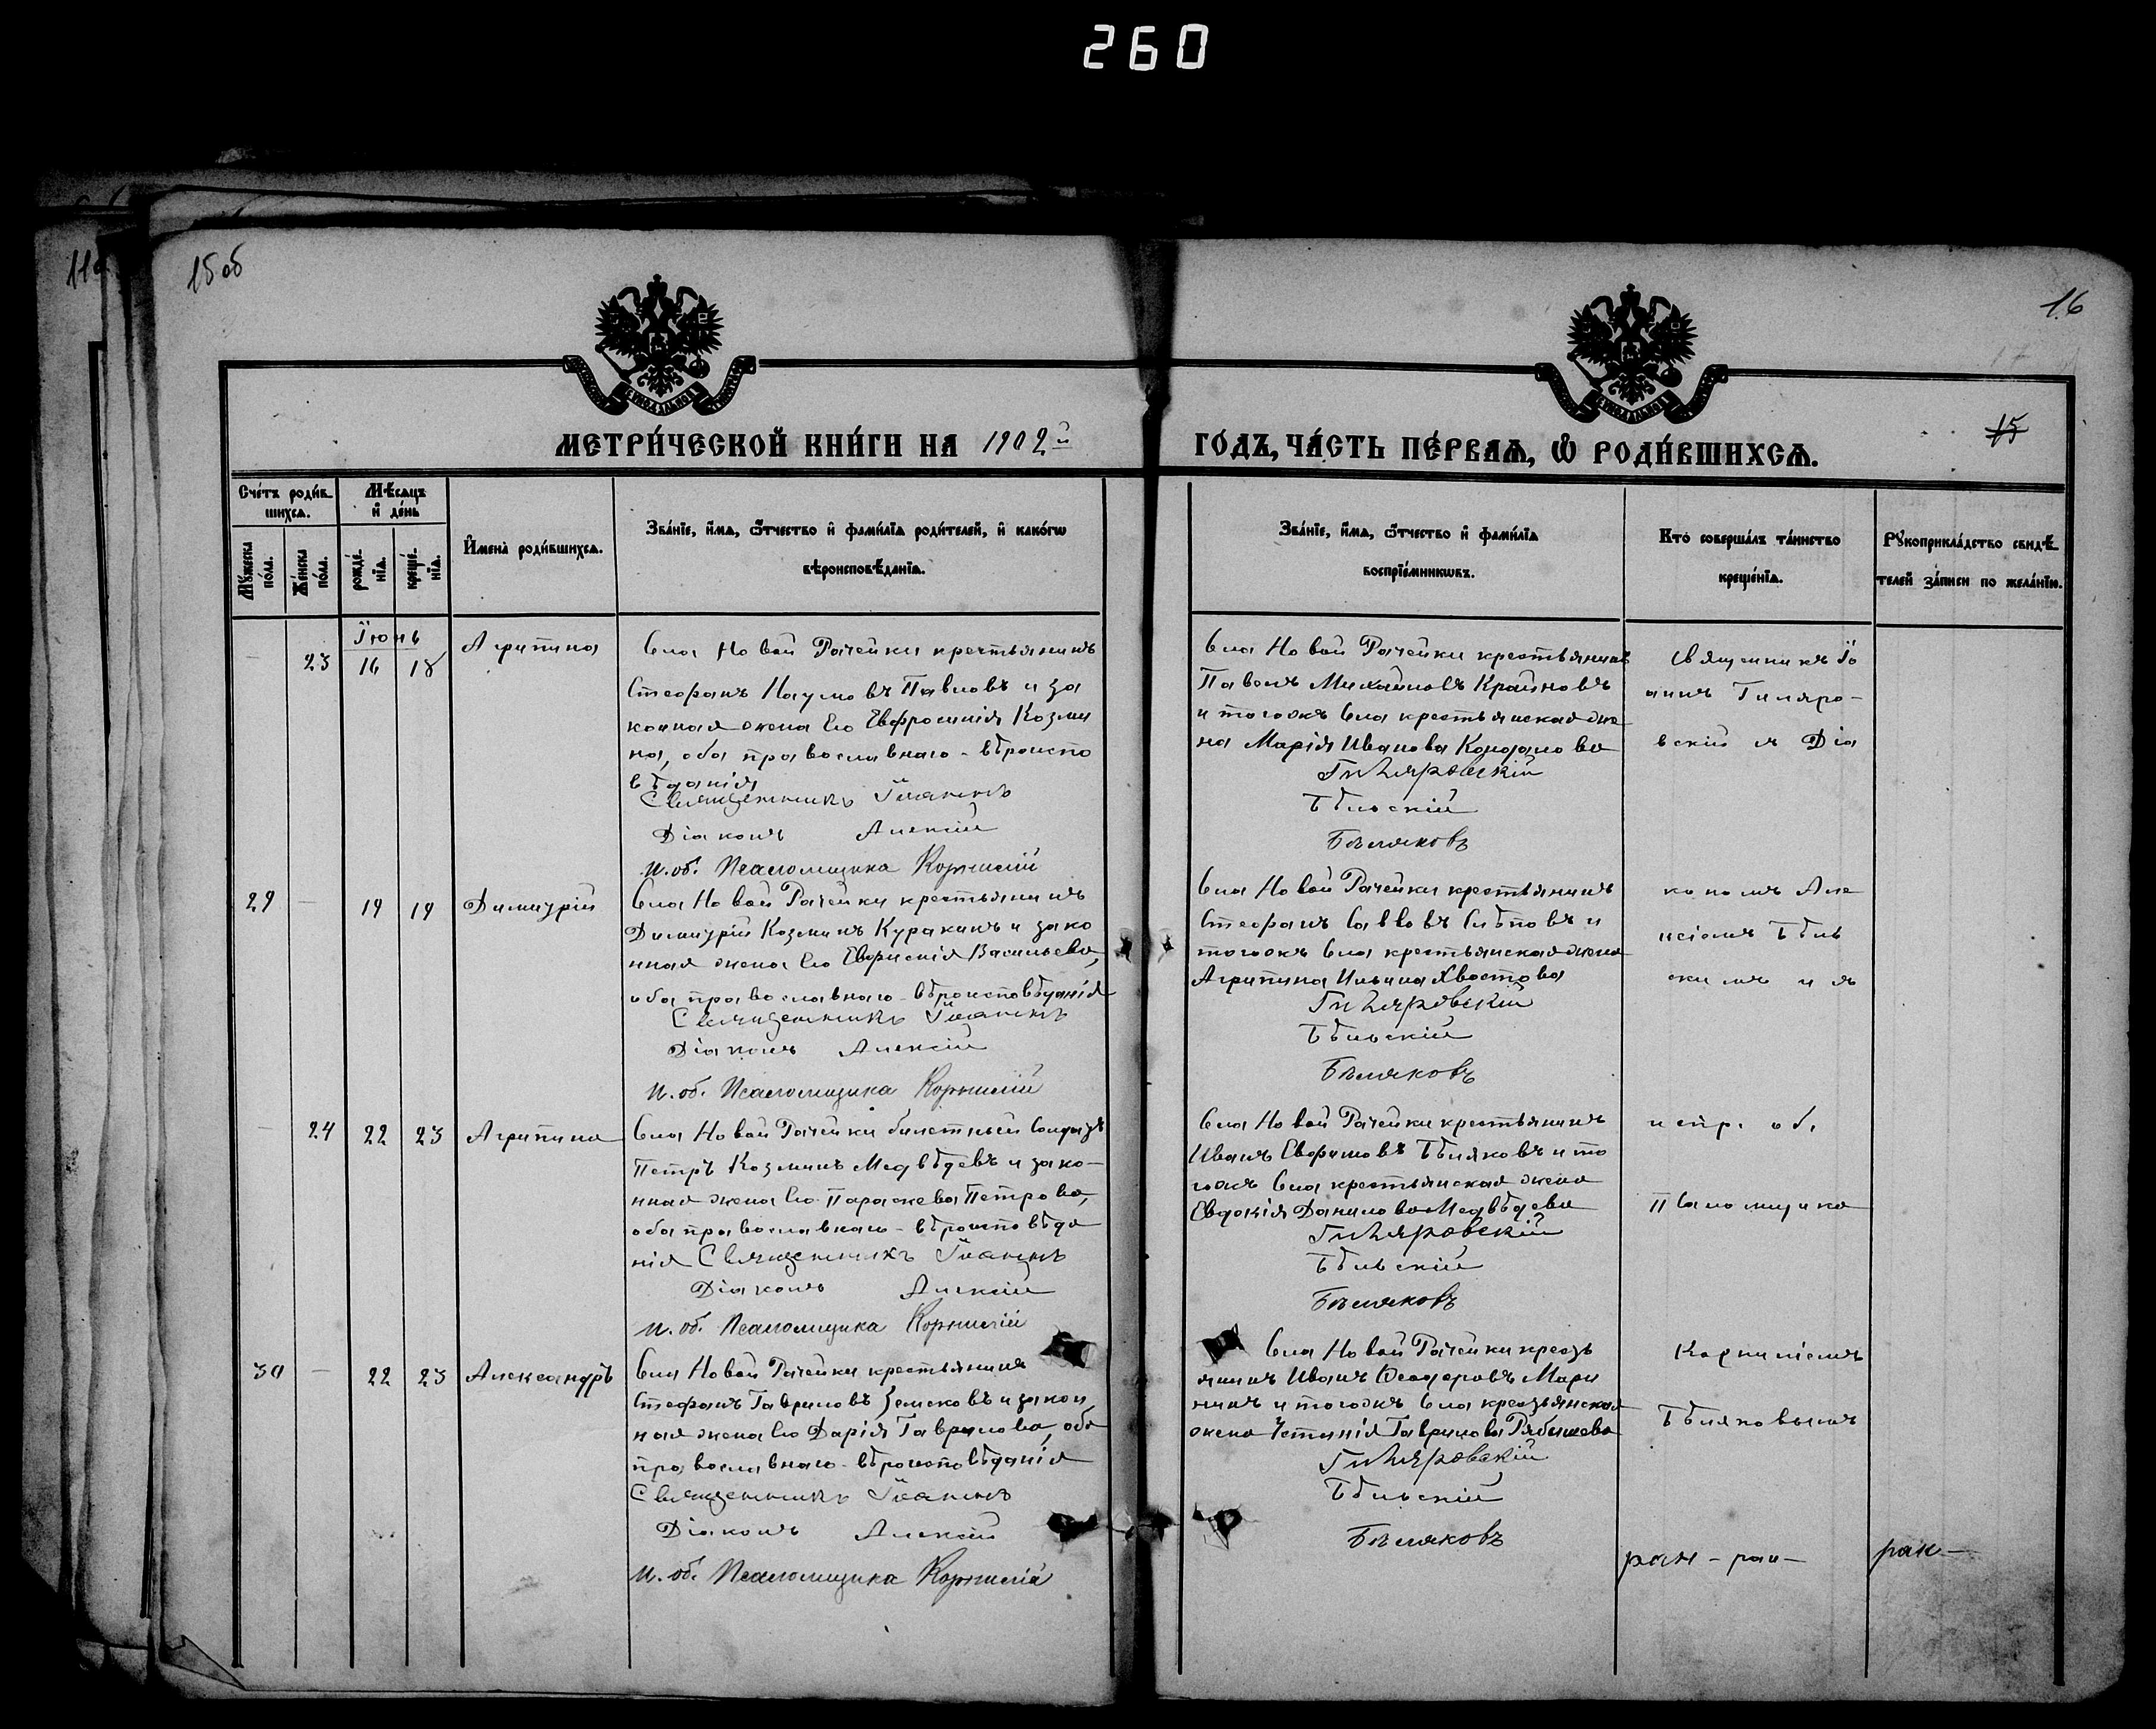 260
11об
15об
16
17
15
МЕТРИ́ЧЕСКОЙ КНИ́ГИ НА 1902й
ГО́ДЪ, ЧА́СТЬ ПЕ́РВАѦ, Ѡ РОДИ́ВШИХСѦ.
Сче́тъ роди́в-
шихсѧ.
Мѣ́сяцъ
и де́нь
Мꙋ́жеска
по́ла.
Же́нска
по́ла.
рожде́-
нїѧ.
креще́-
нїѧ.
И҆мена̀ роди́вшихсѧ.
Зва́нїе, и҆́мѧ, ѻ҆́тчество и҆ фами́лїѧ роди́телей, и҆ како́гѡ
вѣроисповѣ́данїѧ.
Зва́нїе, и҆́мѧ, ѻ҆́тчество и҆ фами́лїѧ
воспрїе́мникѡвъ.
Кто̀ соверша́лъ та́инство
креще́нїѧ.
Рꙋкоприкла́дство свидѣ́-
телей за́писи по жела́нїю.
Іюнь
— 23 16 18 Агрипина
Села Новой Рачейки крестьянинъ
Стефанъ Наумовъ Павловъ и за
конная жена его Евфросинія Козми
на, оба православнаго-вѣроиспо
вѣданія
Священникъ Іоаннъ
Діаконъ Алексій
И. об. Псаломщика Корнилій
Села Новой Рачейки крестьянинъ
Павелъ Михайловъ Крайновъ
и тогожъ села крестьянская же
на Марія Иванова
Гиляровскій
Бѣльскій
Бѣляковъ
Священникъ Іо
аннъ Гиляро-
вскій съ Діа
29 — 19 19 Димитрій
Села Новой Рачейки крестьянинъ
Димитрій Козминъ Куракинъ и зако
нная жена его Васильева,
оба православнаго-вѣроисповѣданія
Священникъ Іоаннъ
Діаконъ Алексій
И. об. Псаломщика Корнилій
Села Новой Рачейки крестьянинъ
Стефанъ Савовъ Слѣповъ и
тогожъ села крестьянская жена
Агрипина Ильина Хвостова
Гиляровскій
Бѣльскій
Бѣляковъ
кономъ Але
ксіемъ Бѣль
скимъ и
— 24 22 23 Агрипина
Села Новой Рачейки билетный солдатъ
Петръ Козминъ Медвѣдевъ и зако-
нная жена его Параскева Петрова,
оба православнаго-вѣроисповѣда
нія Священникъ Іоаннъ
Діаконъ Алексій
И. об. Псаломщика Корнилій
Села Новой Рачейки крестьянинъ
Иванъ Ефимовъ Бѣляковъ и то
гожъ села крестьянская жена
Евдокія Данилова Медвѣдева
Гиляровскій
Бѣльскій
Бѣляковъ
испр. об.
Псаломщика
30 — 22 23 Александръ
Села Новой Рачейки крестьянинъ
Стефанъ Гавриловъ Земсковъ и закон
ная жена его Дарія Гаврилова, оба
православнаго-вѣроисповѣданія
Священникъ Іоаннъ
Діаконъ Алексій
И. об. Псаломщика Корнилій
Села Новой Рачейки кресть
янинъ Иванъ Ѳеодоровъ Мари
нинъ и тогожъ села крестьянская
жена Устинія Гаврилова
Гиляровскій
Бѣльскій
Бѣляковъ
Корниліемъ
Бѣляковымъ